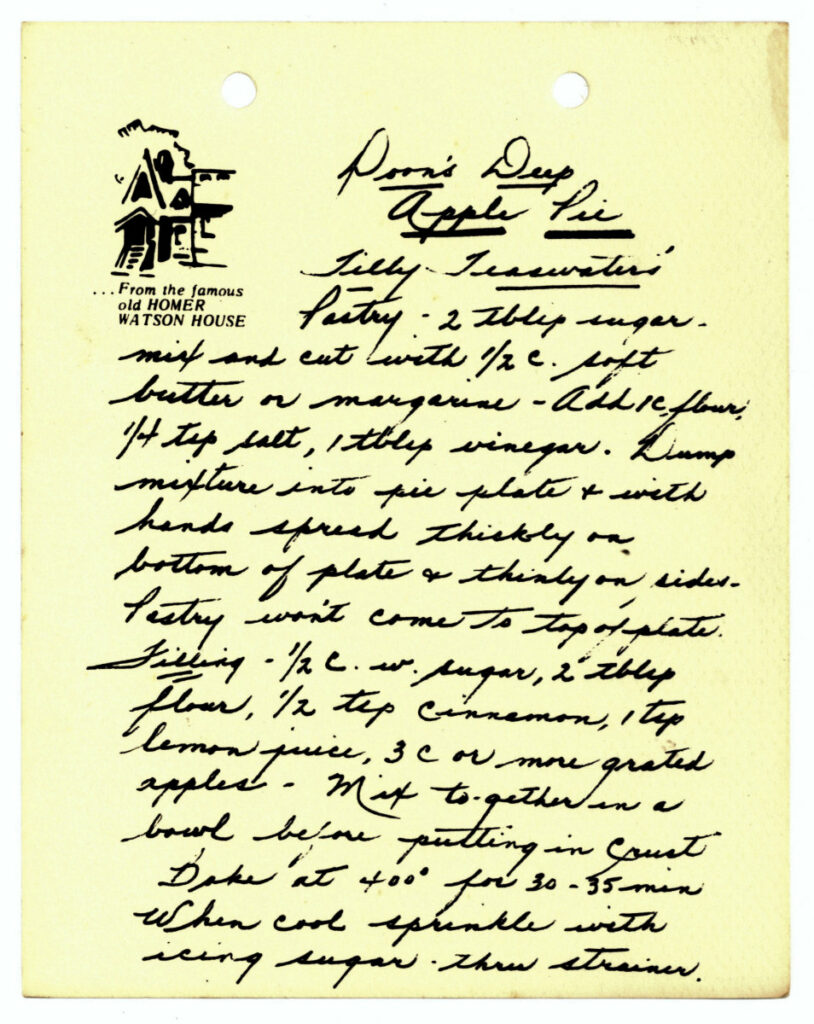 Doon's Deep
Apple Pie
Tilly Teaswaters'
...From the famous
old HOMER
WATSON HOUSE
Pastry - 2 tblsp sugar -
mix and cut with 1/2 c. soft
butter or margarine - Add 1 c. flour,
1/4 tsp salt, 1 tblsp vinegar. Dump
mixture into pie plate + with
hands spread thickly on
bottom of plate + thinly on sides -
Pastry won't come to top of plate.
Filling - 1/2 c. w. sugar, 2 tblsp
flour, 1/2 tsp cinnamon, 1 tsp
lemon juice, 3 c or more grated
apples - Mix to-gether in a
bowl before putting in crust
Bake at 400° for 30 - 35 min
When cool sprinkle with
icing sugar - thru strainer.